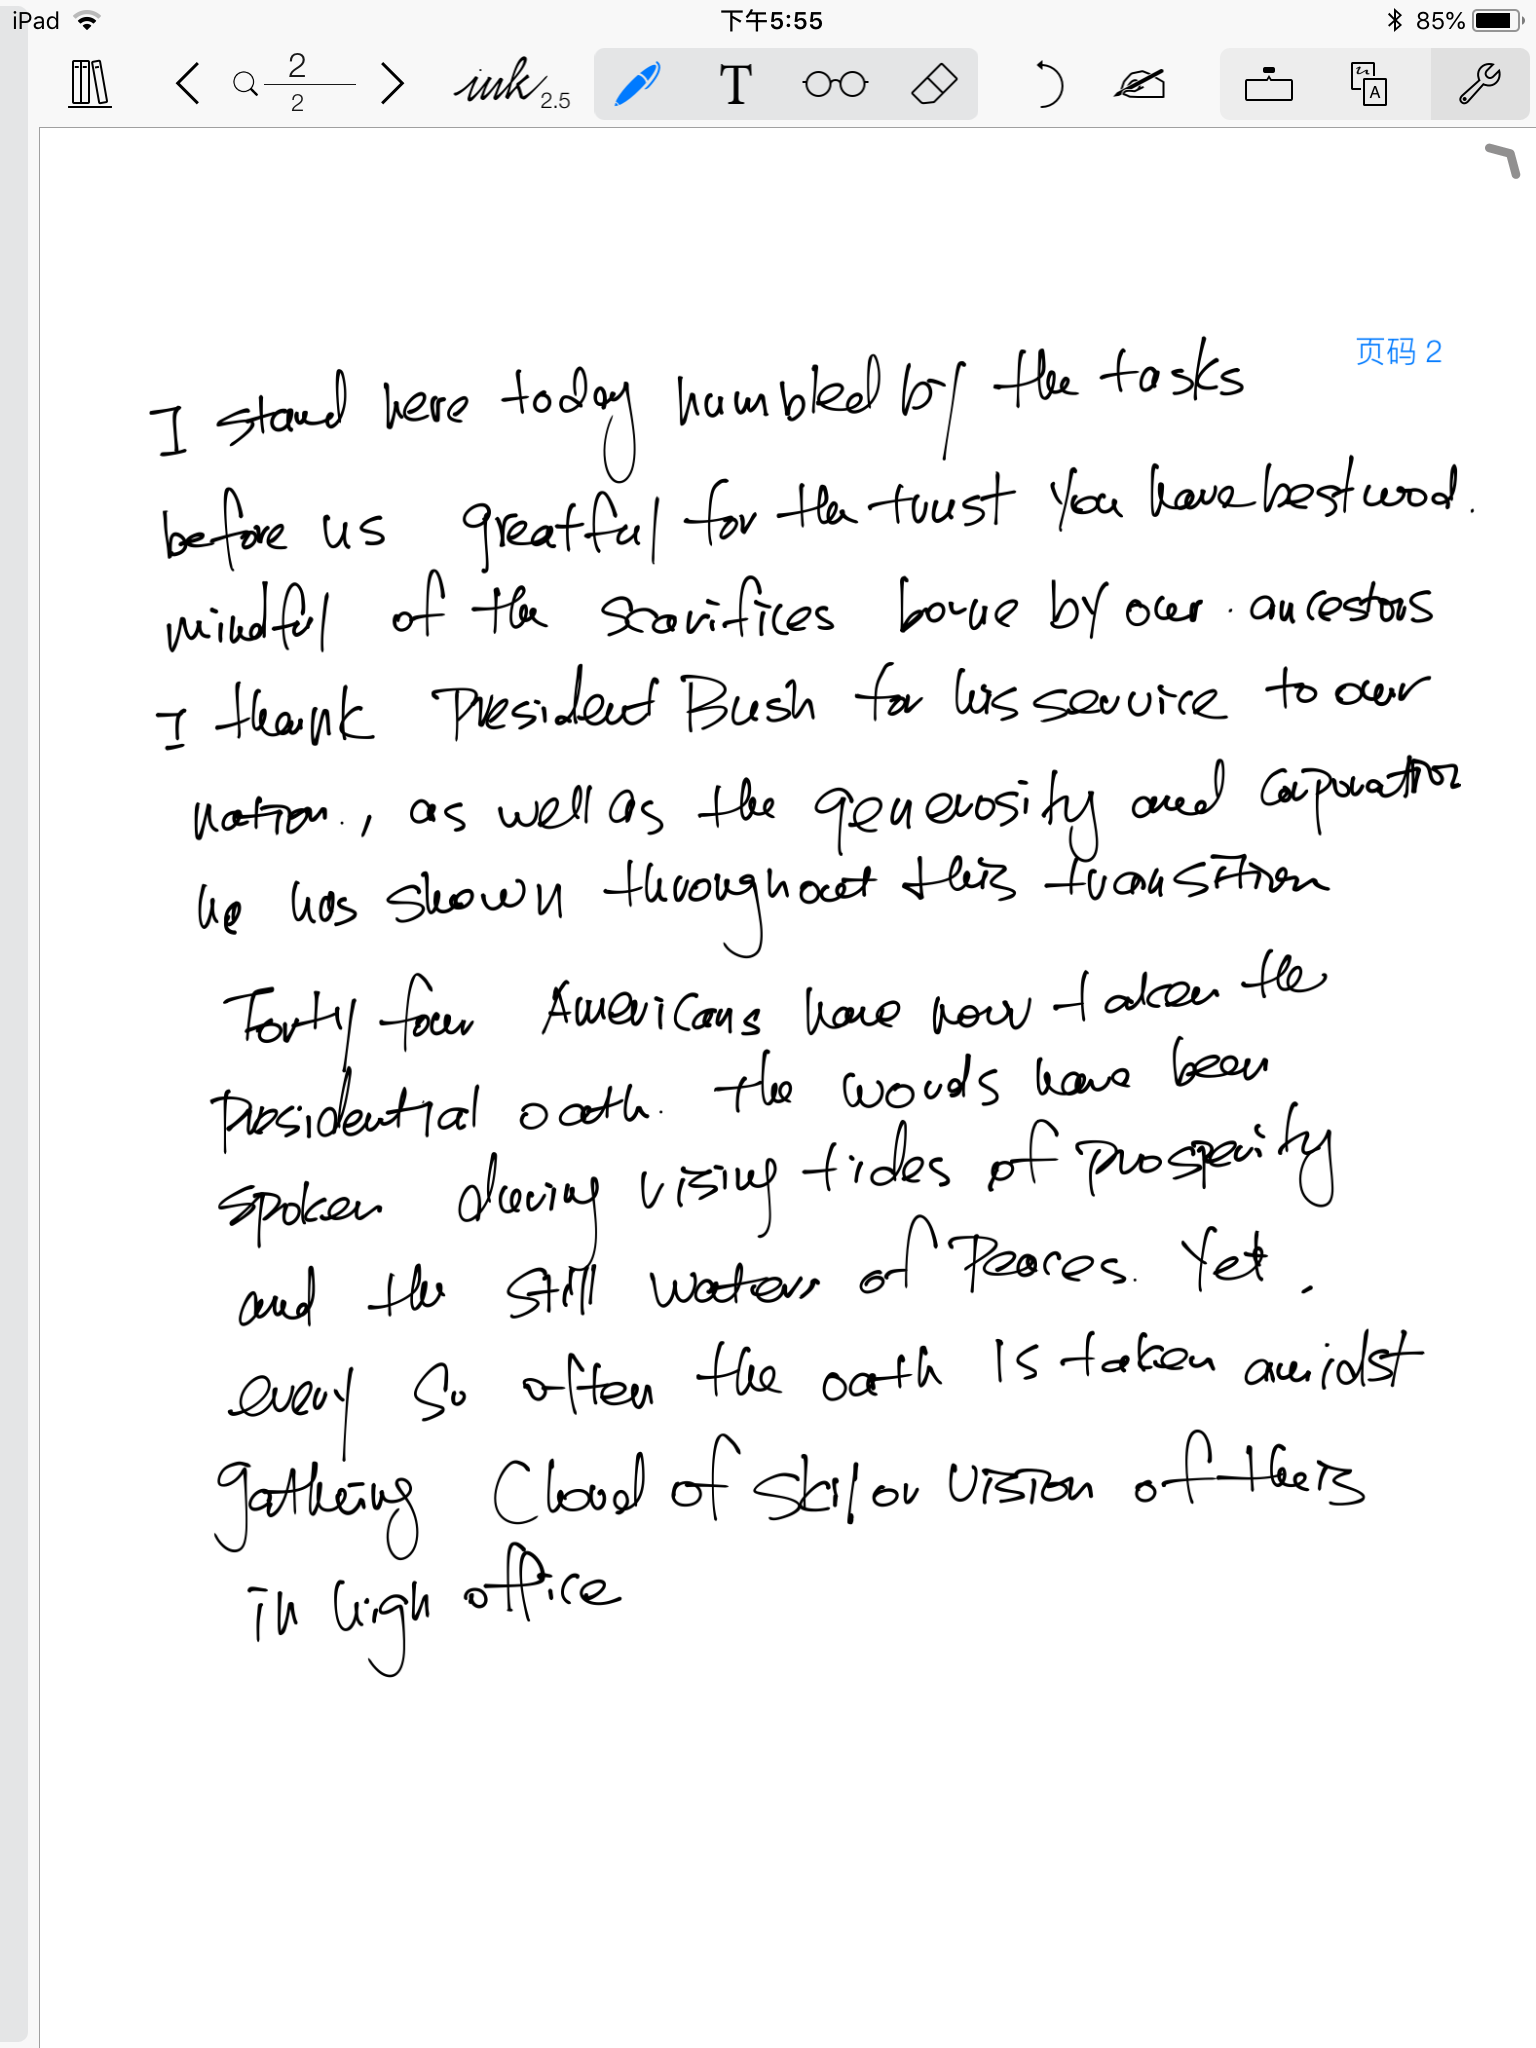 iPad 下午5:55 85%
2
2
ink 2.5 T A
页码 2
I stand here today humbled by the tasks
before us greatful for the trust you have bestwod.
mindful of the sacrifices borne by our ancestors
I thank President Bush for his service to our
nation., as well as the generosity and
he has shown throughout this transition
Forty four Americans have now taken the
presidential oath. the words have been
spoken during rising tides of prosperity
and the still waters of Peaces. Yet.
every so often the oath is taken amidst
gathering Cloud of skil or vision of theis
in high office